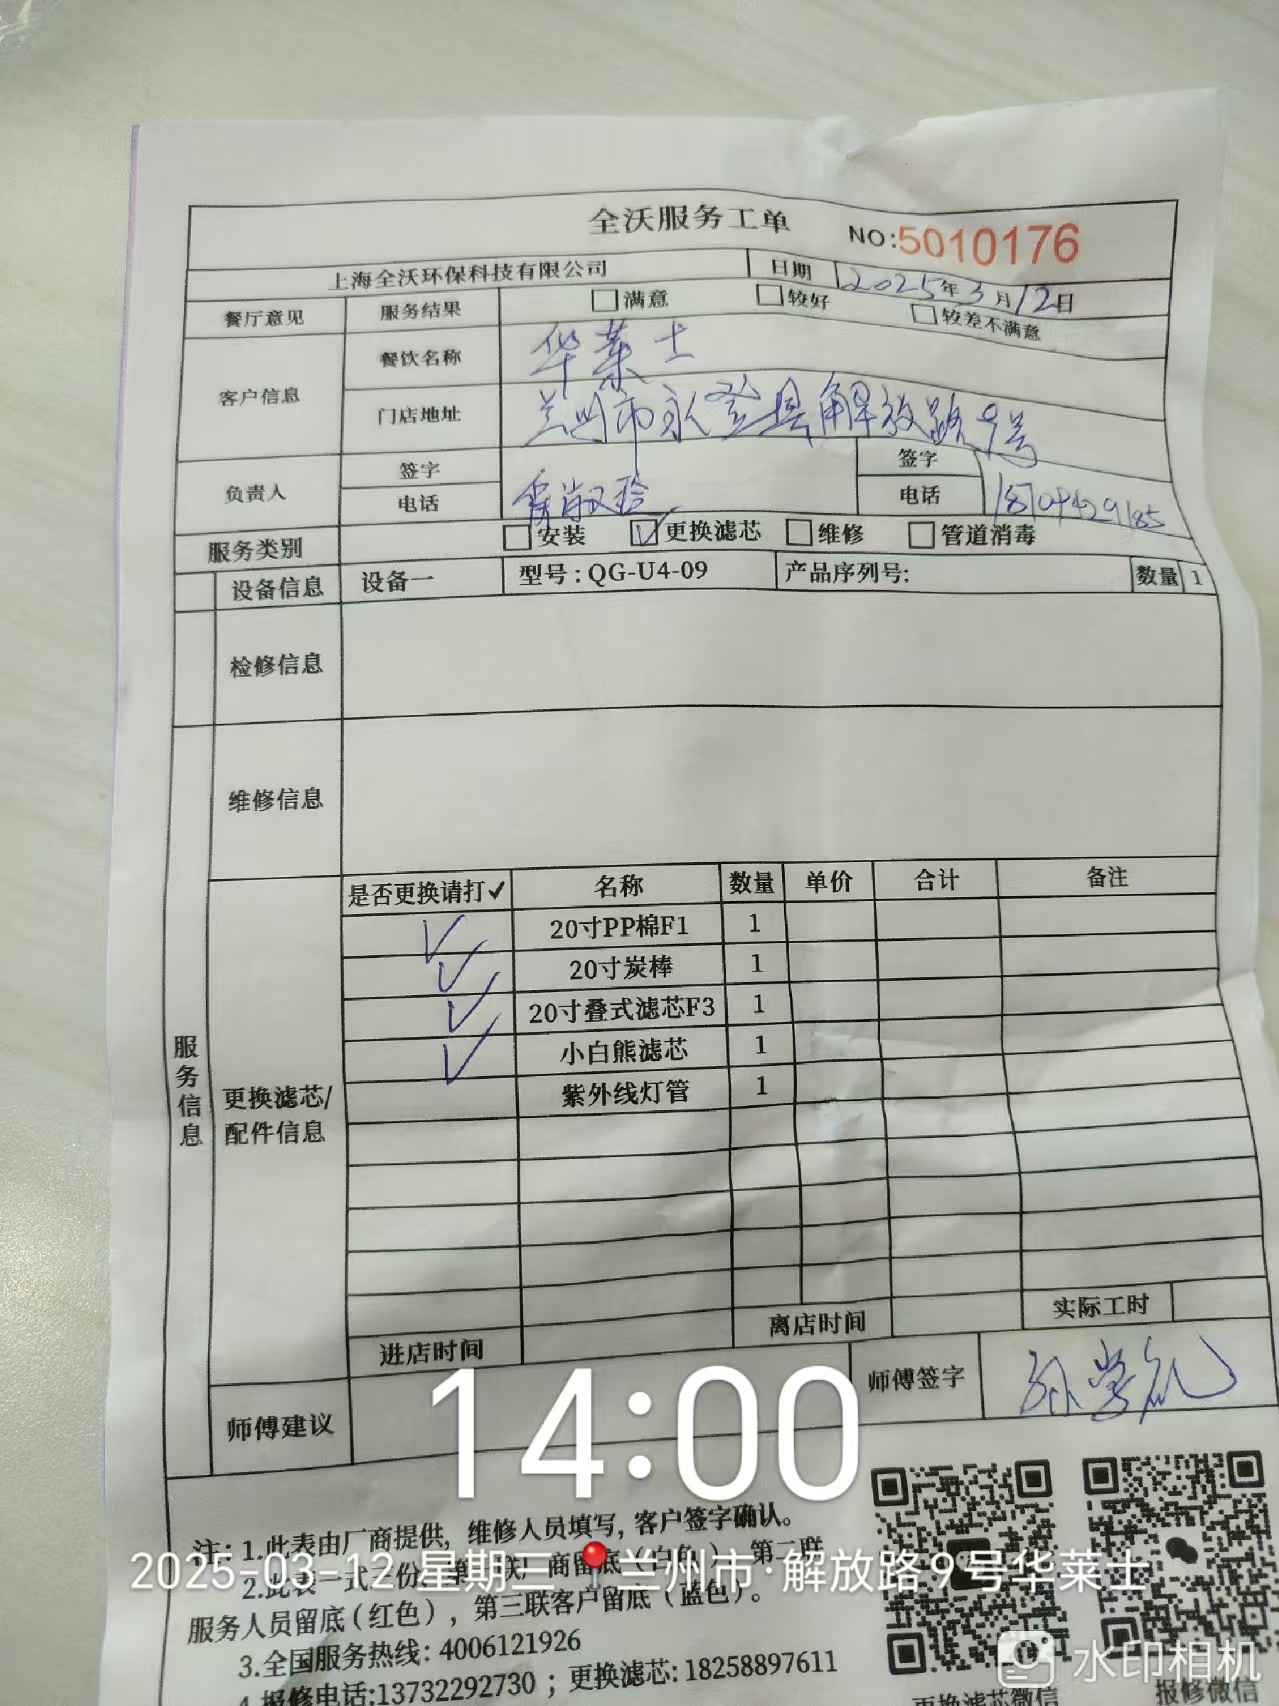 全沃服务工单 NO:5010176
上海全沃环保科技有限公司 日期 2025年3月12日
餐厅意见 服务结果 满意 较好 较差不满意
客户信息 餐饮名称 华莱士
门店地址 兰州市永登县解放路9号
负责人 签字 签字
电话 电话
服务类别 安装 更换滤芯 维修 管道消毒
设备信息 设备一 型号:QG-U4-09 产品序列号: 数量 1
检修信息
维修信息
服务信息
更换滤芯/配件信息
是否更换请打✓ 名称 数量 单价 合计 备注
✓ 20寸PP棉F1 1
✓ 20寸炭棒 1
✓ 20寸叠式滤芯F3 1
✓ 小白熊滤芯 1
紫外线灯管 1
进店时间 离店时间 实际工时
师傅建议 师傅签字
14:00
注:1.此表由厂商提供,维修人员填写,客户签字确认。
2.此表一式三份,第一联厂商留底(白色),第二联
2025-03-12 星期三 兰州市·解放路9号华莱士
服务人员留底(红色),第三联客户留底(蓝色)。
3.全国服务热线:4006121926
4.报修电话:13732292730;更换滤芯:18258897611
更换滤芯微信 报修微信
水印相机